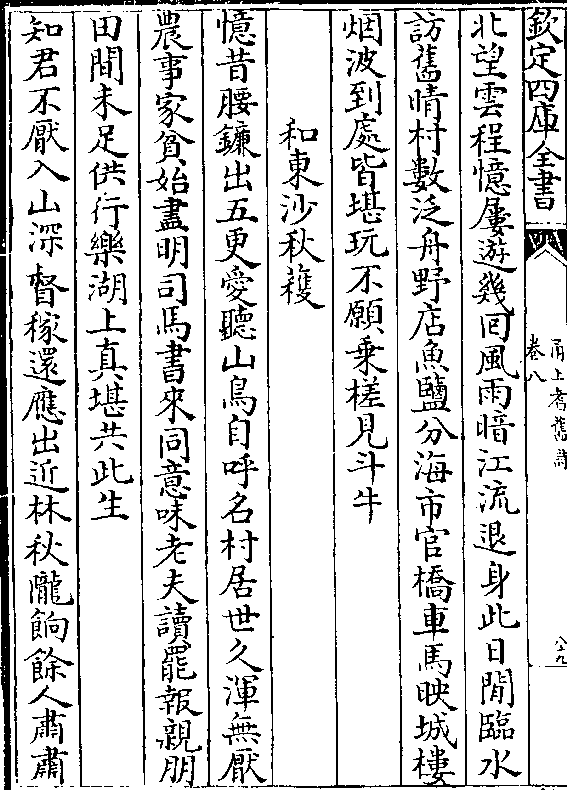 欽定四庫全書
甬上耆舊詩
卷八
八九
北望雲程憶屢遊幾囘風雨暗江流退身此日閒臨水
訪舊晴村數泛舟野店魚鹽分海市官橋車馬映城樓
烟波到處皆堪玩不願乗槎見斗牛
和東沙秋穫
憶昔腰鐮出五更愛聽山鳥自呼名村居世久渾無厭
農事家貧始盡明司馬書來同意味老夫讀罷報親朋
田間未足供行樂湖上真堪共此生
知君不厭入山深督稼還應出近林秋隴餉餘人肅肅